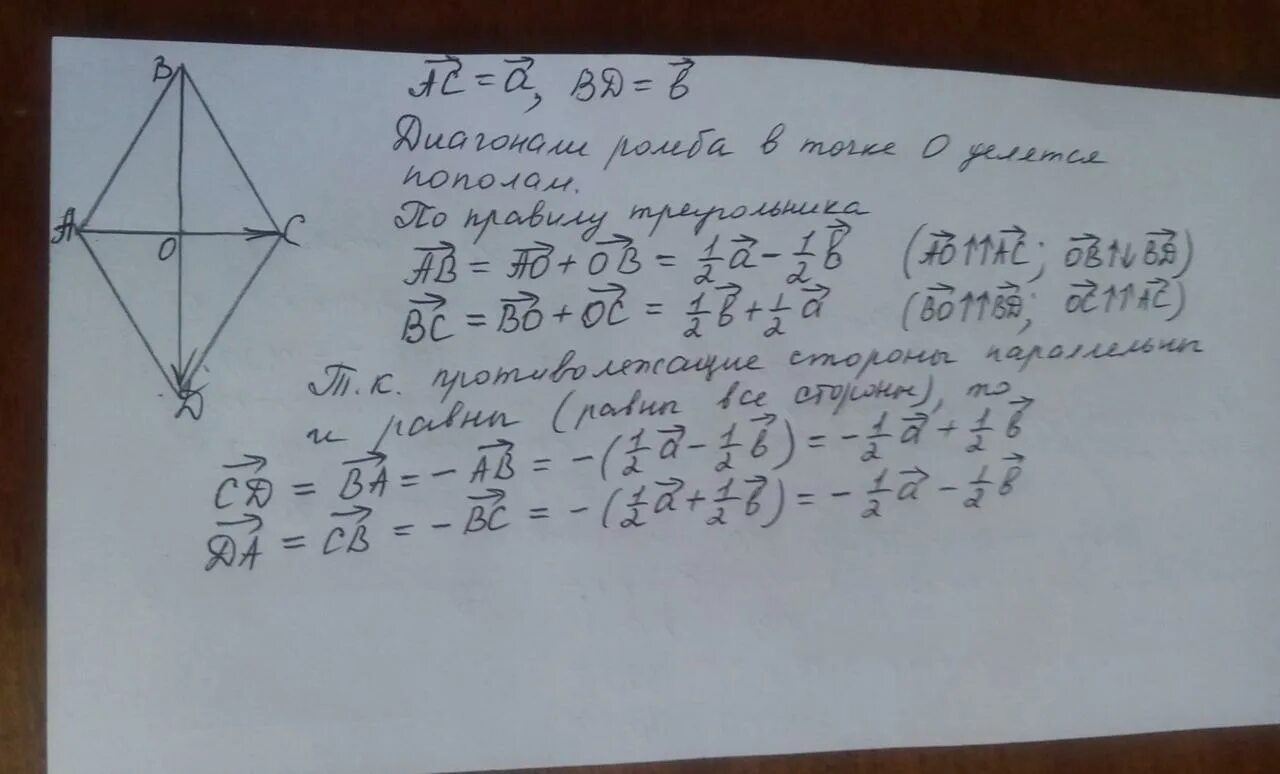 B
A
O
C
D
AC⃗ = a⃗, BD = b⃗
Диагонали ромба в точке O делятся
пополам.
По правилу треугольника
AB⃗ = AO⃗ + OB⃗ = 1/2 a⃗ - 1/2 b⃗ (AO⃗ ↑↑ AC⃗; OB⃗ ↑↓ BD⃗)
BC⃗ = BO⃗ + OC⃗ = 1/2 b⃗ + 1/2 a⃗ (BO⃗ ↑↑ BD⃗; OC⃗ ↑↑ AC⃗)
Т.к. противолежащие стороны параллельны
и равны (равны все стороны), то
CD⃗ = BA⃗ = - AB⃗ = -(1/2 a⃗ - 1/2 b⃗) = - 1/2 a⃗ + 1/2 b⃗
DA⃗ = CB⃗ = - BC⃗ = -(1/2 a⃗ + 1/2 b⃗) = - 1/2 a⃗ - 1/2 b⃗